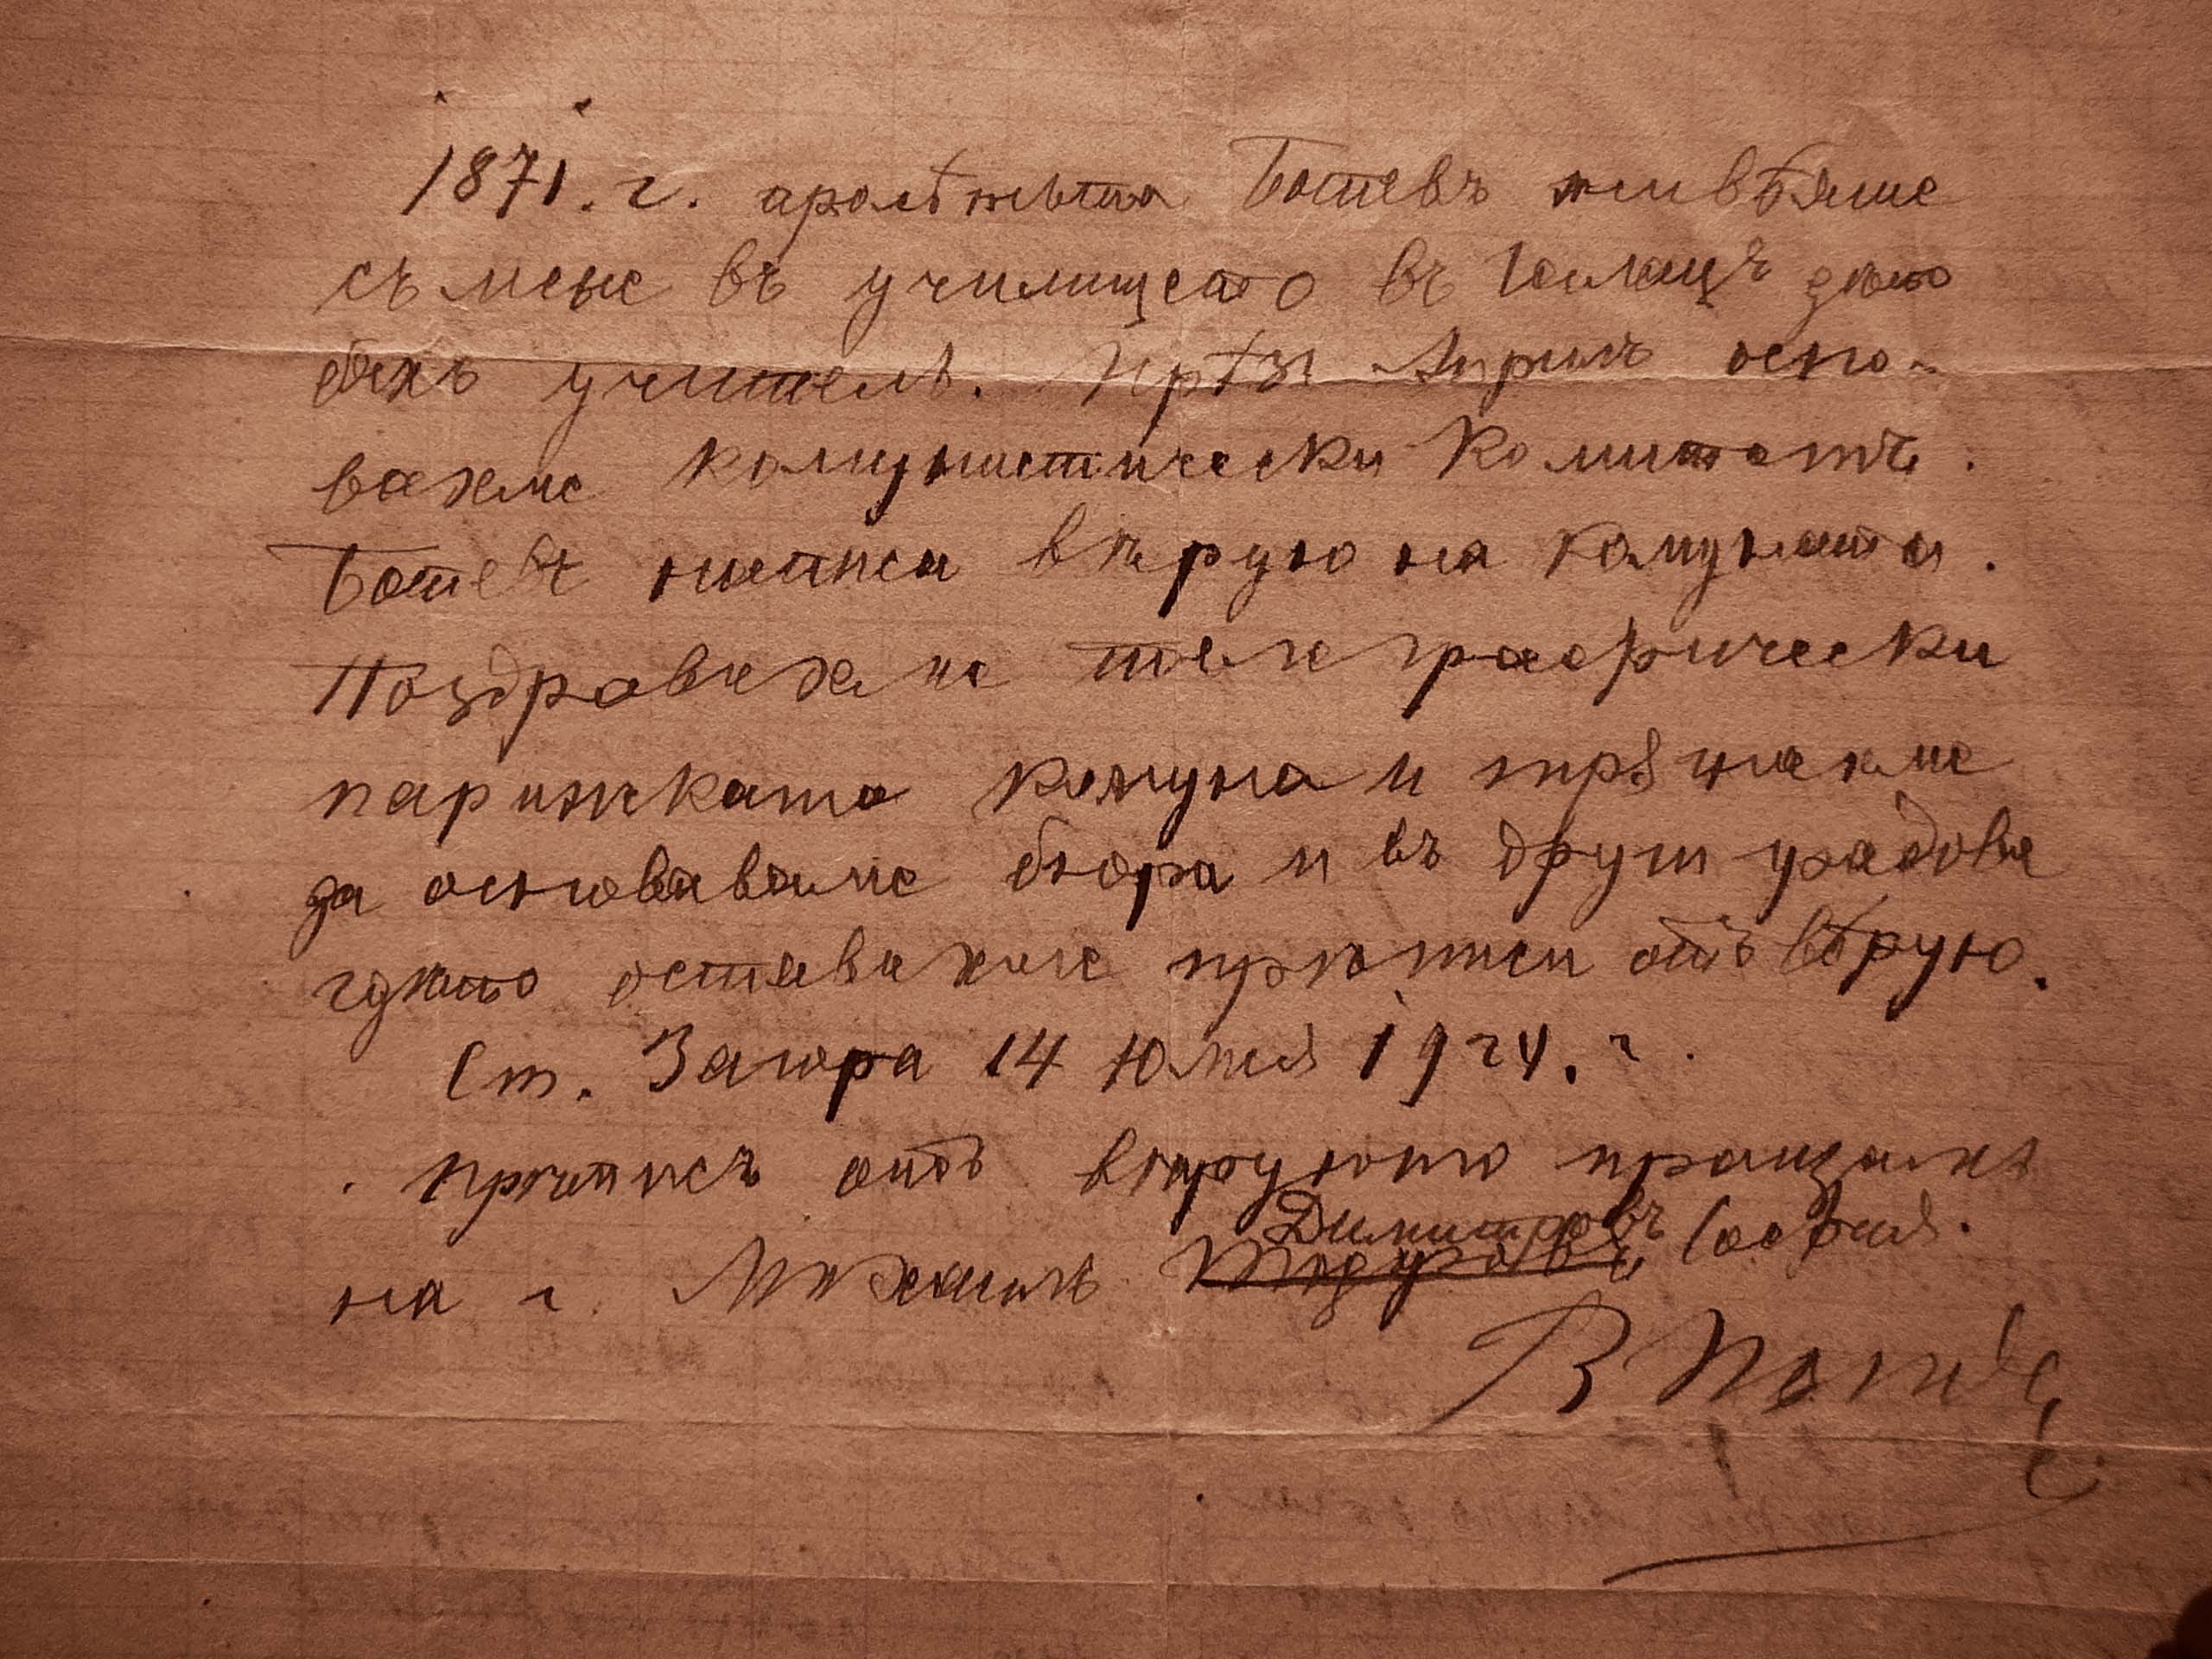 1871. г. пролѣтьта Ботевъ живѣяше
съ мене въ училището въ Галацъ дето
бяхъ учитель. Прѣзъ Априлъ осно-
вахме комунистически комитетъ.
Ботевъ написа вѣрую на комуната.
Поздравихме телеграфически
парижката комуна и тръгнахме
да основаваме бюра и въ други градове
гдѣто оставяхме прѣписи отъ вѣрую.
Ст. Загора 14 Юлий 1924. г.
Прѣписъ отъ вѣруюто пращамъ
на г. Михаилъ Димитровъ София.